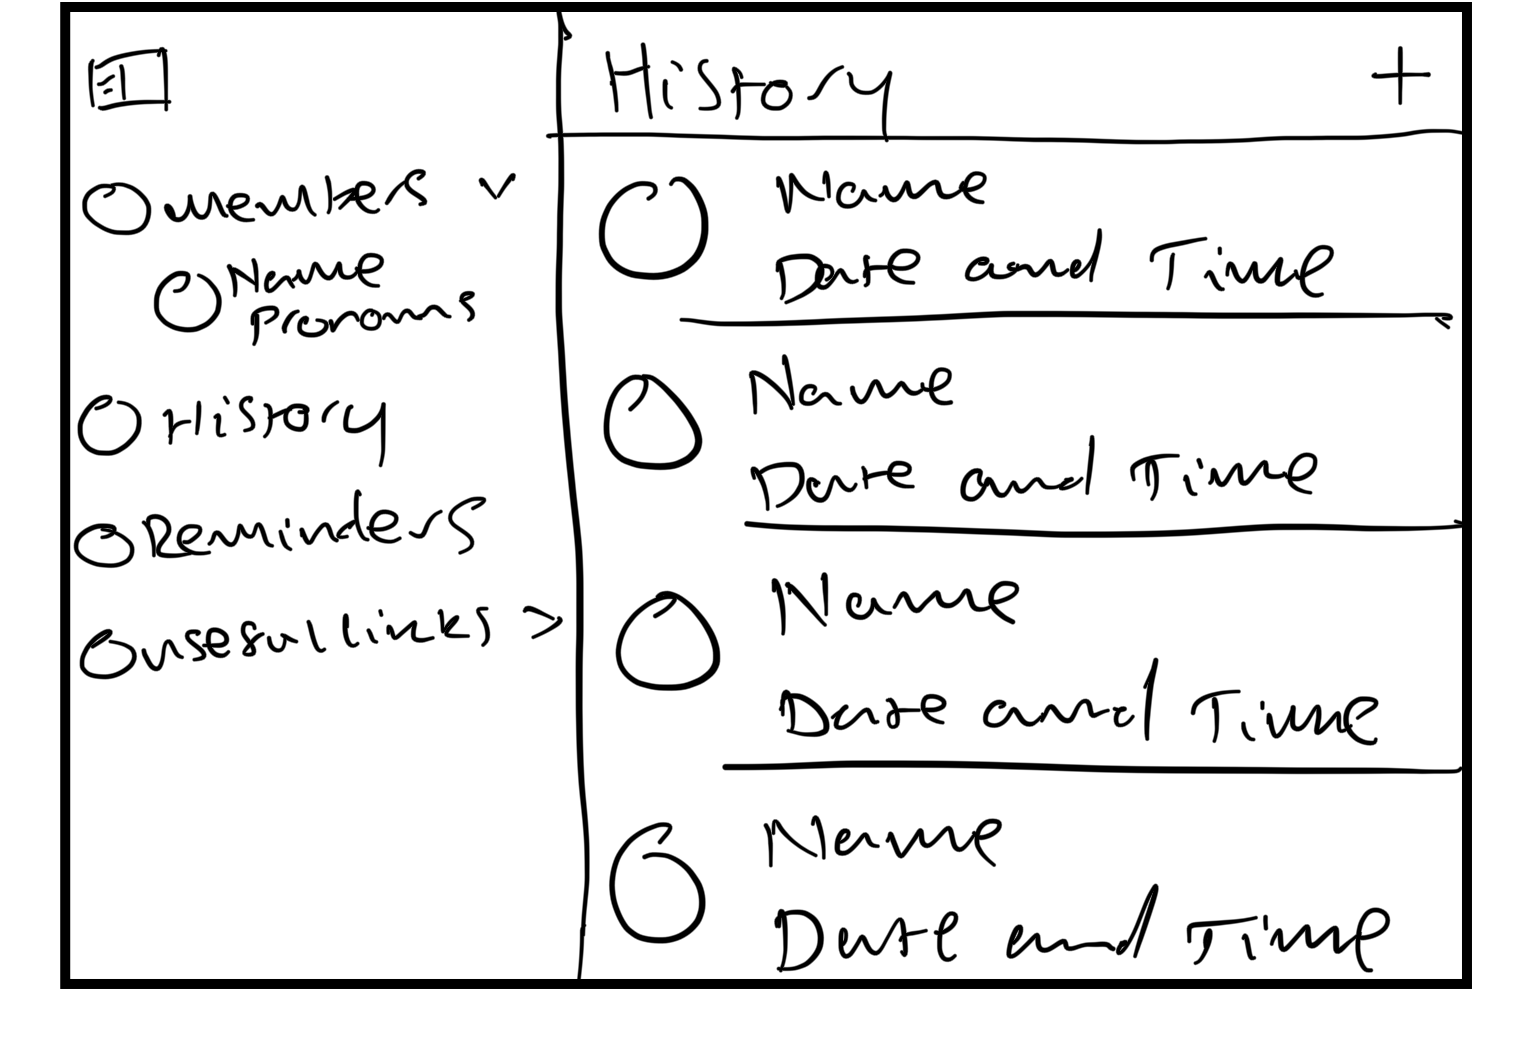 Members
Name
Pronouns
History
Reminders
Useful links
History
Name
Date and Time
Name
Date and Time
Name
Date and Time
Name
Date and Time